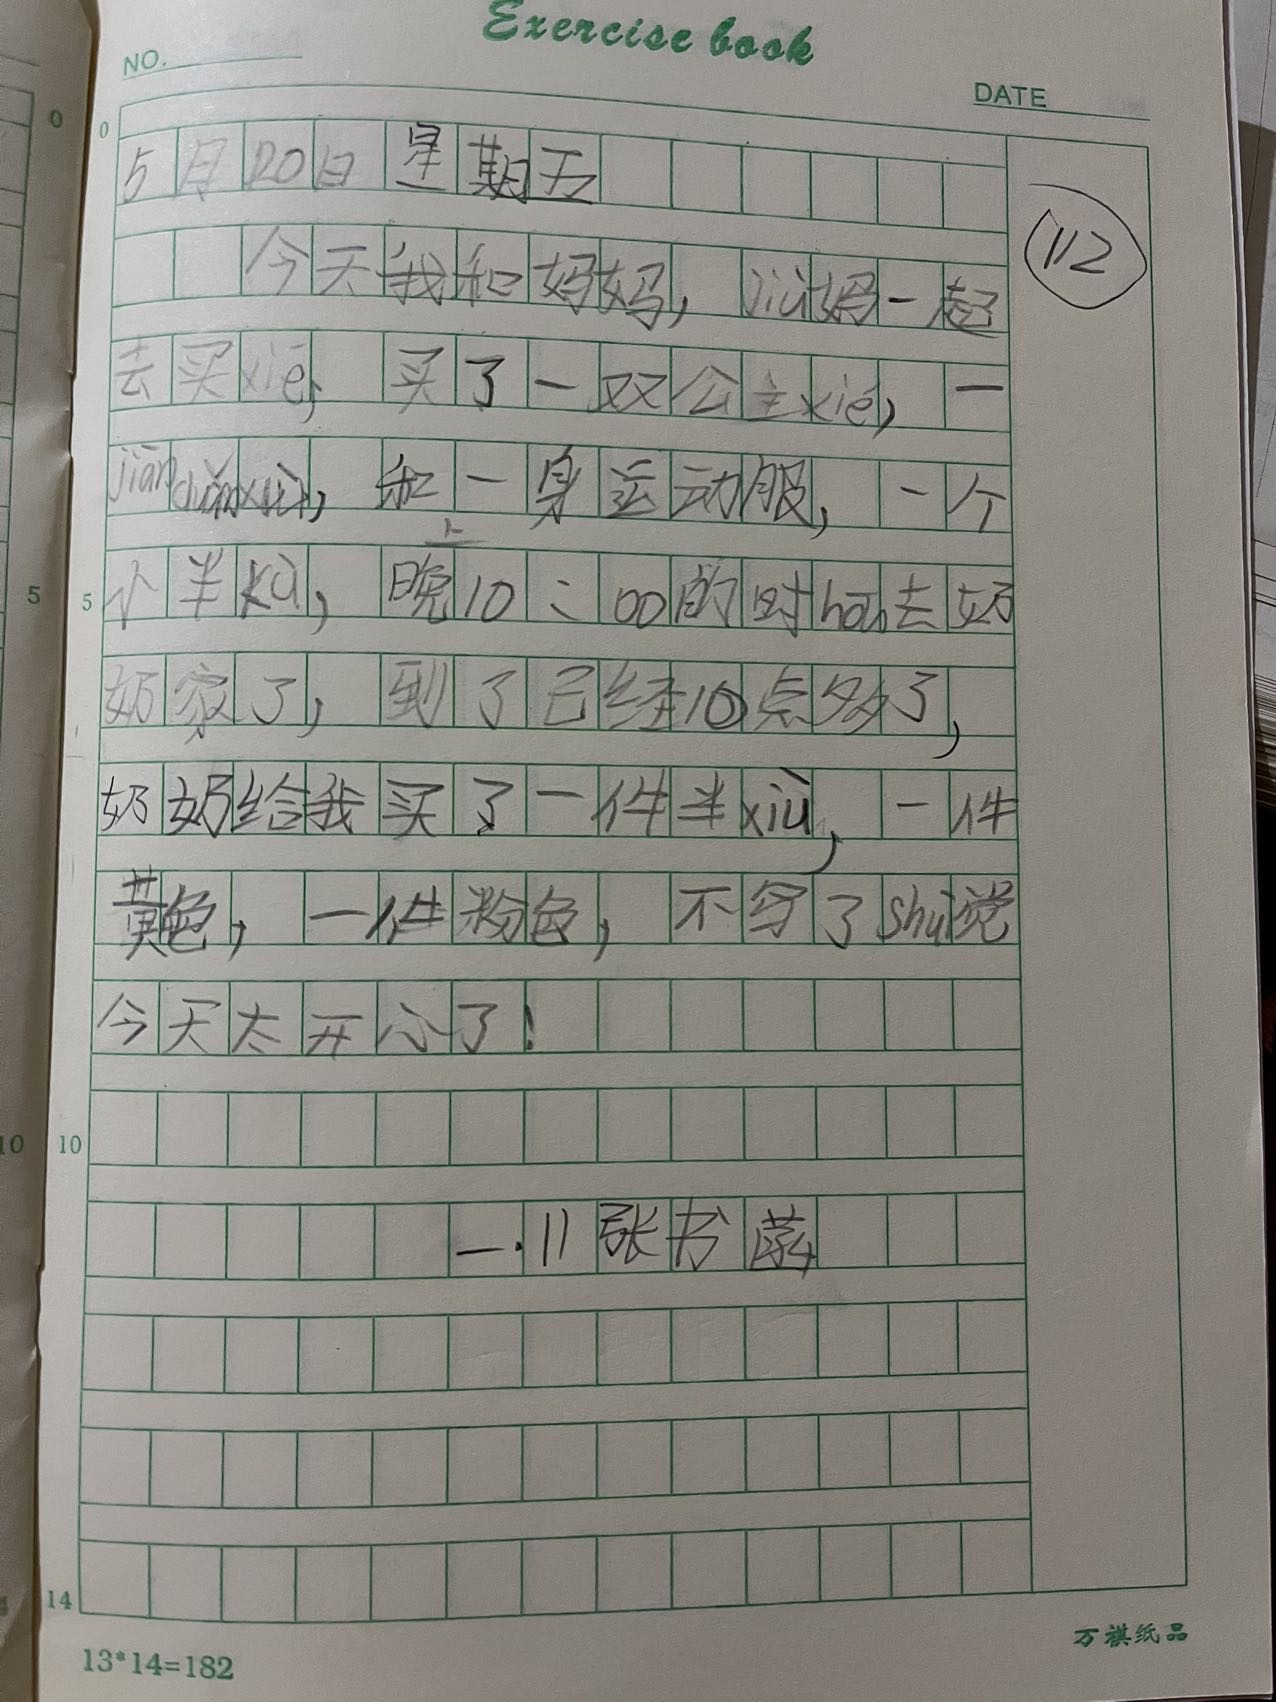 Exercise book
NO.
DATE
0
0
5月20日 星期五
112
今天我和妈妈，jiù妈一起
去买xié，买了一双公主xié，一
jiàn duǎnxiù，和一身运动服，一个
上
5
5
小半kù，晚10：00的时hou去奶
奶家了，到了已经10点多了，
奶奶给我买了一件半xiù，一件
黄色，一件粉色，不写了shuì觉
今天太开心了！
10
10
一.11张书菡
14
万祺纸品
13*14=182